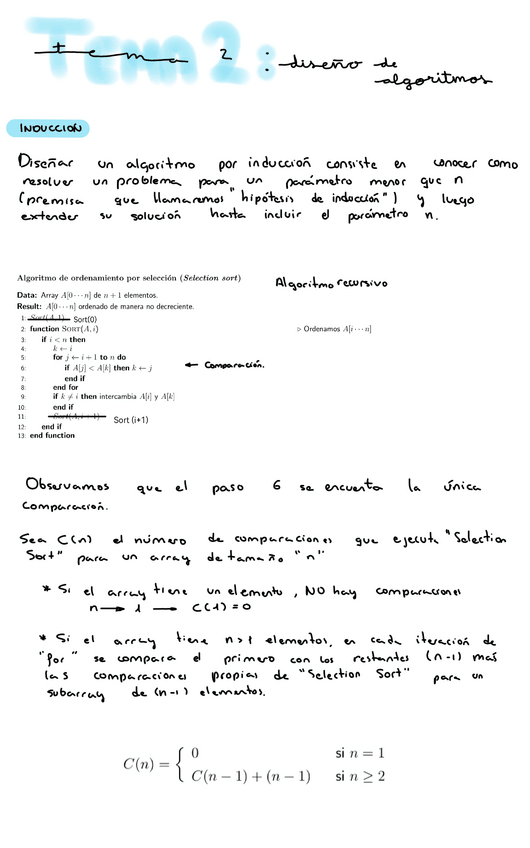 Tema 2: diseño de
algoritmos
INDUCCION
Diseñar un algoritmo por inducción consiste en conocer como
resolver un problema para un parámetro menor que n
(premisa que llamaremos "hipótesis de inducción") y luego
extender su solución hasta incluir el parámetro n.
Algoritmo de ordenamiento por selección (Selection sort)
Algoritmo recursivo
Data: Array A[0 ⋯ n] de n + 1 elementos.
Result: A[0 ⋯ n] ordenado de manera no decreciente.
1: Sort(A, 1) Sort(0)
2: function SORT(A, i) ▷ Ordenamos A[i ⋯ n]
3: if i < n then
4: k ← i
5: for j ← i + 1 to n do
6: if A[j] < A[k] then k ← j ← Comparación.
7: end if
8: end for
9: if k ≠ i then intercambia A[i] y A[k]
10: end if
11: Sort(A, i + 1) Sort (i+1)
12: end if
13: end function
Observamos que el paso 6 se encuentra la única
comparación.
Sea C(n) el número de comparaciones que ejecuta "Selection
Sort" para un array de tamaño "n"
* Si el array tiene un elemento, NO hay comparaciones
n → 1 → C(1) = 0
* Si el array tiene n>1 elementos, en cada iteración de
"for" se compara el primero con los restantes (n-1) más
las comparaciones propias de "Selection Sort" para un
subarray de (n-1) elementos.
C(n) = { 0 si n = 1
C(n − 1) + (n − 1) si n ≥ 2